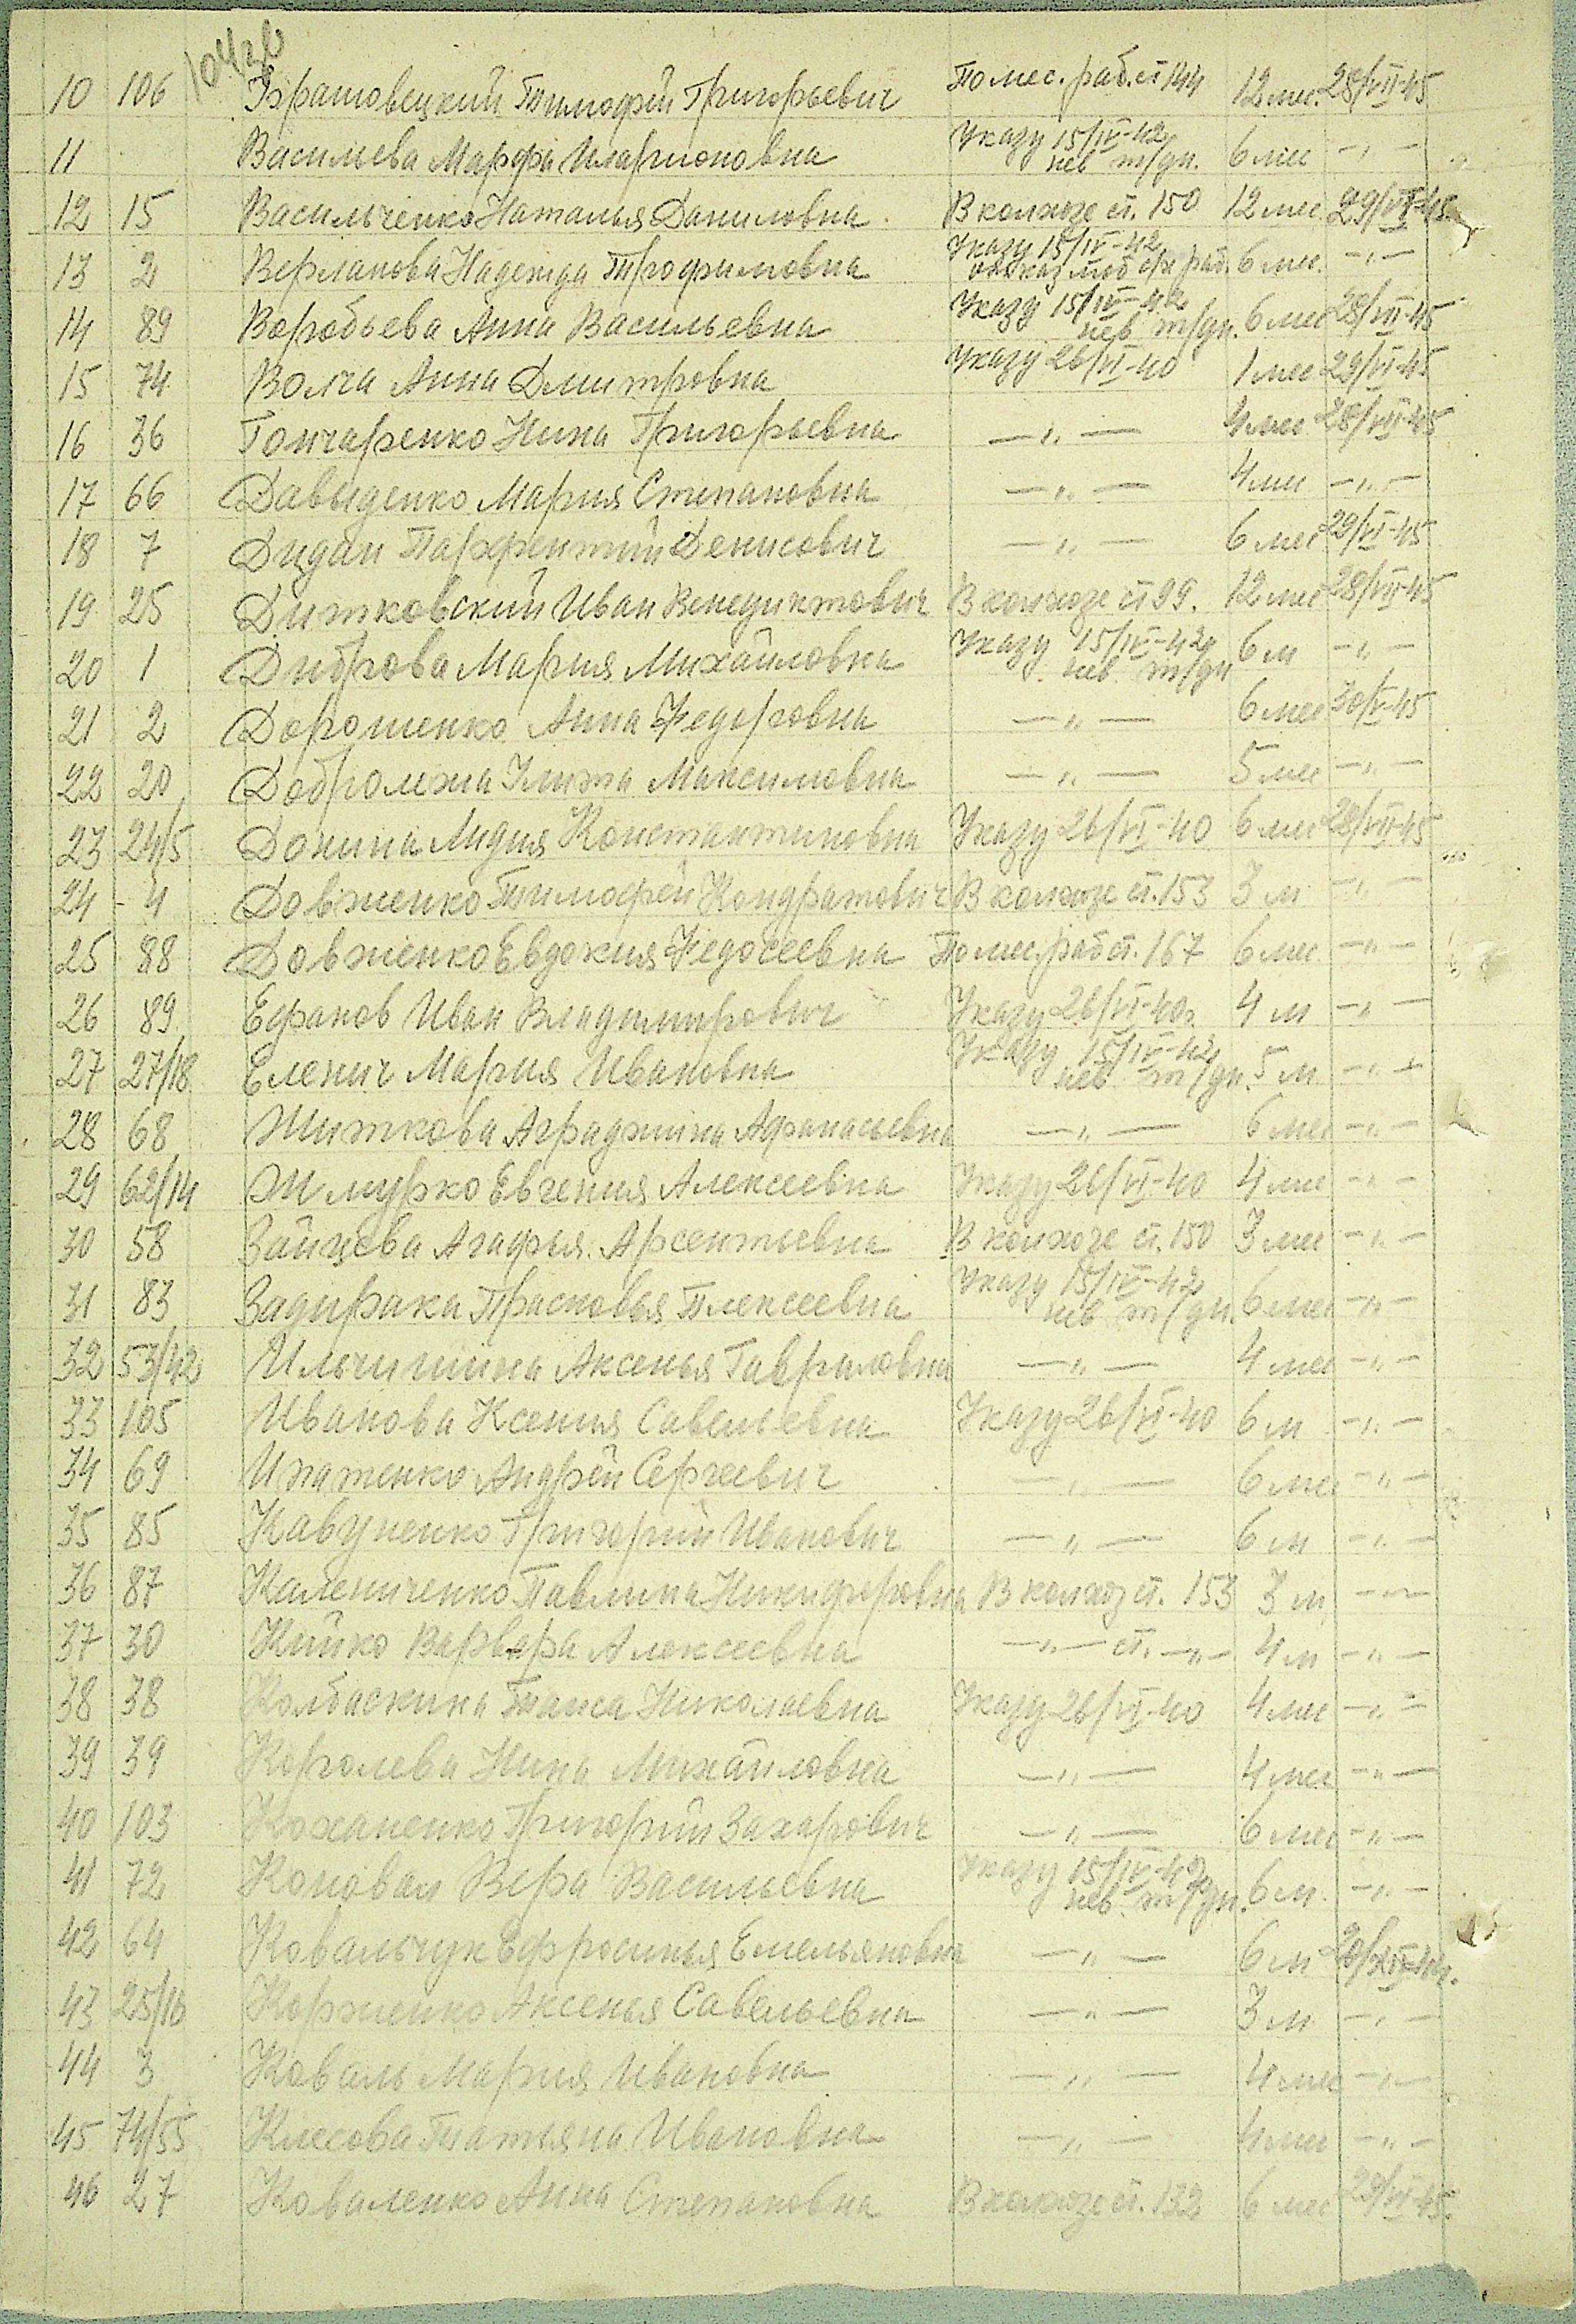 10 106 Тимофей Григорьевич По мес. раб. ст 144 12 мес. 28/VII-45
11 Васильева Марфа Иларионовна Указу 15/IV-42 нев т/дн. 6 мес -„-
12 15 Васильченко Наталья Даниловна. В колхозе ст. 150 12 мес 29/VI-45
13 2 Верланова Надежда Трофимовна Указу 15/IV-42 6 мес. -„-
14 89 Воробьева Анна Васильевна Указу 15/IV-42 нев т/дн. 6 мес 28/VII-45
15 74 Волга Анна Дмитровна Указу 26/VI-40 1 мес 29/VI-45
16 36 Гончаренко Нина Григорьевна -„- 4 мес 28/VII-45
17 66 Давыденко Мария Степановна -„- 4 мес -„-
18 7 Парфентий Денисович -„- 6 мес 29/VI-45
19 25 Дитковский Иван Венедиктович В колхозе ст 99. 12 мес 28/VII-45
20 1 Диброва Мария Михайловна Указу 15/IV-42 нев. т/дн 6 м -„-
21 2 Дорошенко Анна Федоровна -„- 6 мес 30/VI-45
22 20 Максимовна -„- 5 мес -„-
23 24/5 Донина Лидия Константиновна Указу 26/VI-40 6 мес 28/VII-45
24 4 Довженко Тимофей Кондратович В колхозе ст. 153 3 м -„-
25 88 Довженко Евдокия Федосеевна По мес. раб ст. 167 6 мес. -„-
26 89 Ефанов Иван Владимирович Указу 26/VI-40г. 4 м -„-
27 27/18 Еленич Мария Ивановна Указу 15/IV-42 нев т/дн. 5 м -„-
28 68 Житкова Афанасьевна -„- 6 мес -„-
29 62/14 Жмурко Евгения Алексеевна Указу 26/VI-40 4 мес -„-
30 58 Зайцева Агафья Арсентьевна В колхозе ст. 150 3 мес -„-
31 83 Задирака Прасковья Алексеевна Указу 15/IV-42 нев т/дн. 6 мес -„-
32 53/42 Ильчишина Аксенья Гавриловна -„- 4 мес -„-
33 105 Иванова Ксения Савельевна Указу 26/VI-40 6 м -„-
34 69 Ипатенко Андрей Сергеевич -„- 6 мес -„-
35 85 Кавуненко Григорий Иванович -„- 6 м -„-
36 87 Калениченко Павлина Никифоровна В колхоз ст. 153 3 м -„-
37 30 Кийко Варвара Алексеевна -„- ст. -„- 4 м -„-
38 38 Колбаскина Таиса Николаевна Указу 26/VI-40 4 мес -„-
39 39 Королева Нина Михайловна -„- 4 мес -„-
40 103 Коханенко Григорий Захарович -„- 6 мес -„-
41 72 Коновал Вера Васильевна Указу 15/IV-42 нев. т/дн. 6 м. -„-
42 64 Ковальчук Ефросинья Емельяновна -„- 6 м
43 25/16 Корженко Аксенья Савельевна -„- 3 м -„-
44 3 Коваль Мария Ивановна -„- 4 мес -„-
45 74/55 Клесова Татьяна Ивановна -„- 4 мес -„-
46 27 Коваленко Анна Степановна В колхозе ст. 132 6 мес 29/VI-45.